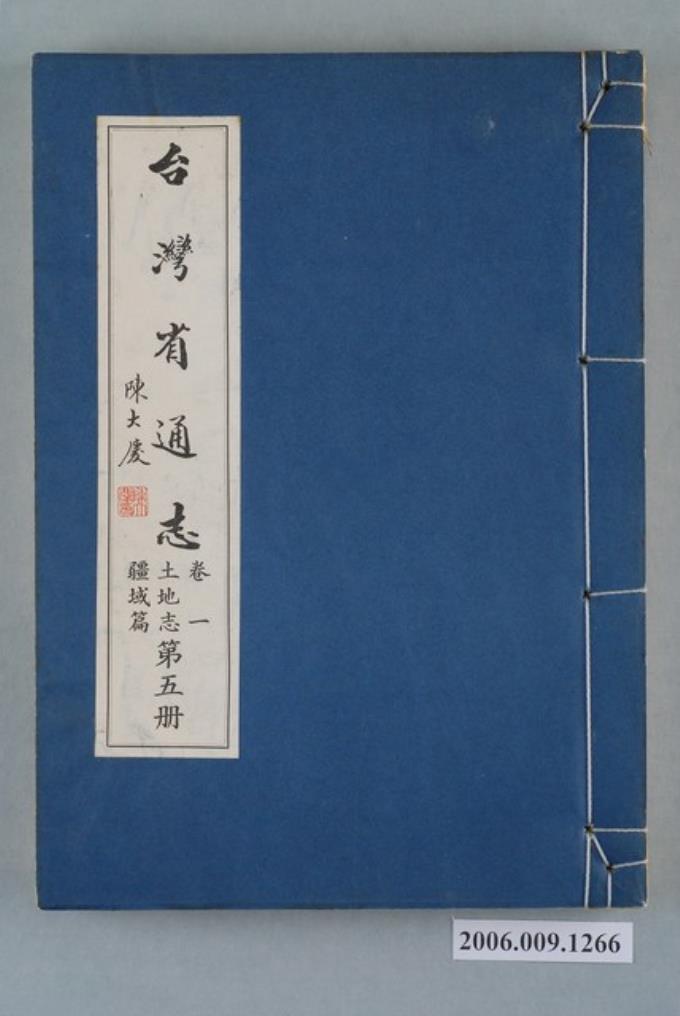 台灣省通志
卷一
土地志
疆域篇
第五册
陳大慶
2006.009.1266